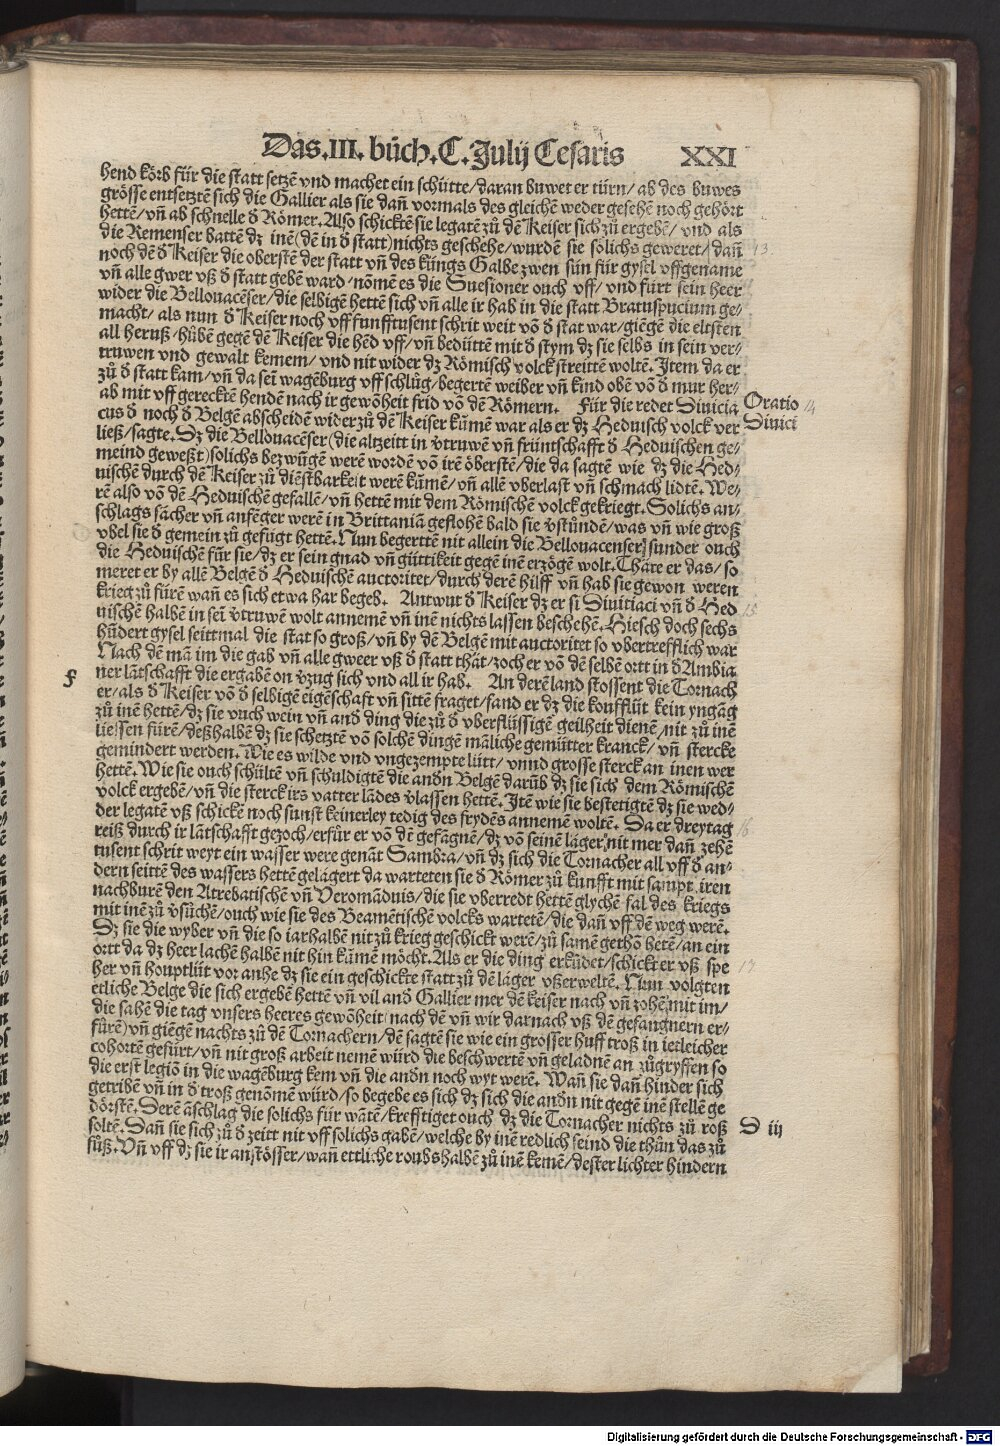 Das.III.bůch.C.Julij Cesaris XXI
hend kőrb für die statt setzē vnd machet ein schütte/daran buwet er türn/ab des buwes
grősse entsetztē sich die Gallier als sie dañ vormals des gleichē weder gesehē noch gehőrt
hettē/vñ ab schnelle d̄ Rőmer. Also schicktē sie legatē zů dē Keiser sich zů ergebē/vnd als
die Remenser battē dz inē(dē in d̄ statt)nichts geschehe/wurdē sie sőlichs geweret/dañ
noch dē d̄ Keiser die oberstē der statt vñ des küngs Galbe zwen sün für gysel vffgename
vñ alle gwer vß d̄ statt gebē ward/nőmē es die Suesioner ouch vff/vnd fůrt sein heer
wider die Bellouacēser/die selbigē hettē sich vñ alle ir hab in die statt Bratuspucium ge⸗
macht/als nun d̄ Keiser noch vff funfftusent schrit weit vō d̄ stat war/giēgē die eltsten
all heruß/hůbē gegē dē Keiser die hēd vff/vñ bedüttē mit d̄ stym dz sie selbs in sein ver⸗
truwen vnd gewalt kemem/vnd nit wider dz Rőmisch volck streittē woltē. Item da er
zů d̄ statt kam/vñ da seī wagēburg vff schlůg/begertē weiber vñ kind obē vō d̄ mur her⸗
ab mit vff gerecktē hendē nach ir gewōheit frid vō dē Rőmern. Für die redet Diuicia
cus d̄ noch d̄ Belgē abscheidē wider zů dē Keiser kumē war als er dz Heduisch volck ver
ließ/sagte. Dz die Bellouacēser(die altzeitt in v̄truwē vñ früntschafft d̄ Heduischen ge⸗
meind geweßt)solichs bezwūgē werē wordē vō irē őberstē/die da sagtē wie dz die Hed⸗
uischē durch dē Keiser zů diēstbarkeit werē kumē/vñ allē vberlast vñ schmach lidtē. We⸗
rē also vō dē Heduischē gefallē/vñ hettē mit dem Rőmischē volck gekriegt. Solichs an⸗
schlags sācher vñ anfēger werē in Brittaniā geflohē bald sie v̄stůndē/was vñ wie groß
vbel sie d̄ gemein zů gefügt hettē. Nun begerttē nit allein die Bellouacenser/sunder ouch
die Heduischē für sie/dz er sein gnad vñ güttikeit gegē inē erzőgē wolt. Thäre er das/so
meret er by allē Belgē d̄ Heduischē auctoritet/durch derē hilff vñ hab sie gewon weren
krieg zů fürē wañ es sich etwa har begeb. Antwut d̄ Keiser dz er si Diuitiaci vñ d̄ Hed
uischē halben in seī v̄truwē wolt annemē vñ inē nichts lassen beschehē. Hiesch doch sechs
hūdert gysel seittmal die stat so groß/vñ by dē Belgē mit auctoritet so vbertrefflich war
Nach dē mā im die gab vñ alle gweer vß d̄ statt thät/zoch er vō dē selbē ortt in d̄ Ambia
ner lātschafft die ergabē on v̄zug sich vnd all ir hab. An derē land stossent die Tornach
er/als d̄ Keiser vō d̄ selbigē eigēschaft vñ sittē fraget/fand er dz die koufflüt kein yngāg
zů inē hettē/dz sie ouch wein vñ and̄ ding die zů d̄ vberflüssigē geilheit dienē/nit zů inē
liessen fürē/deßhalbē dz sie schetztē vō solchē dingē māliche gemütter kranck/vñ stercke
gemindert werden. Wie es wilde vnd vngezempte lütt/vnnd grosse sterck an inen wer
hettē. Wie sie ouch schültē vñ schuldigtē die and̄n Belgē darūb dz sie sich dem Rőmischē
volck ergebē/vñ die sterck irs vatter lādes v̄lassen hettē. Itē wie sie bestetigtē dz sie wed⸗
der legatē vß schickē noch sunst keinerley tedig des frydēs annemē woltē. Da er dreytag
reiß durch ir lātschafft gezoch/erfůr er vō dē gefāgnē/dz vō seinē läger nit mer dañ zehē
tusent schrit weyt ein wasser were genāt Sambra/vñ dz sich die Tornacher all vff d̄ an⸗
dern seittē des wassers hettē gelägert da warteten sie d̄ Rőmer zů kunfft mit sampt iren
nachburē den Atrebatischē vñ Veromādnis/die sie vberredt hettē glychē fal des kriegs
mit inē zů v̄sůchē/ouch wie sie des Beamētischē volcks wartetē/die dañ vff dē weg werē.
Dz sie die wyber vñ die so iarhalbē nit zů krieg geschickt werē/zů samē gethō hetē/an ein
ortt da dz heer lachē halbē nit hin kumē mőcht. Als er die ding erkūdet/schickt er vß spe
her vñ houptlüt vor anhe dz sie ein geschickte statt zů dē läger vßerweltē. Nun volgten
etliche Belge die sich ergebē hettē vñ vil and̄ Gallier mer dē keiser nach vñ zohē mit im/
die sahē die tag vnsers heeres gewōheit nach dē vñ wir darnach vß dē gefangnern er⸗
fürē)vñ giēgē nachts zů dē Tornachern/dē sagtē sie wie ein grősser huff troß in ietleicher
cohortē gefürt/vñ nit groß arbeit nemē würd die beschwertē vñ geladnē an zůgryffen so
die erst legiō in die wagēburg kem vñ die and̄n noch wyt werē. Wañ sie dañ hinder sich
getribē vñ in d̄ troß genōmē würd/so begebe es sich dz sich die and̄n nit gegē inē stellē ge
dőrstē. Derē āschlag die solichs für wātē/krefftiget ouch dz die Tornacher nichts zů roß
soltē. Dañ sie sich zů d̄ zeitt nit vff solichs gabē/welche by inē redlich seind die thůn das zů
füß. Vñ vff dz sie ir anstősser/wañ ettliche roubshalbē zů inē kemē/dester lichter hindern
Oratio
Diuici
f
D iij
13
14
15
16
17
Digitalisierung gefördert durch die Deutsche Forschungsgemeinschaft - DFG